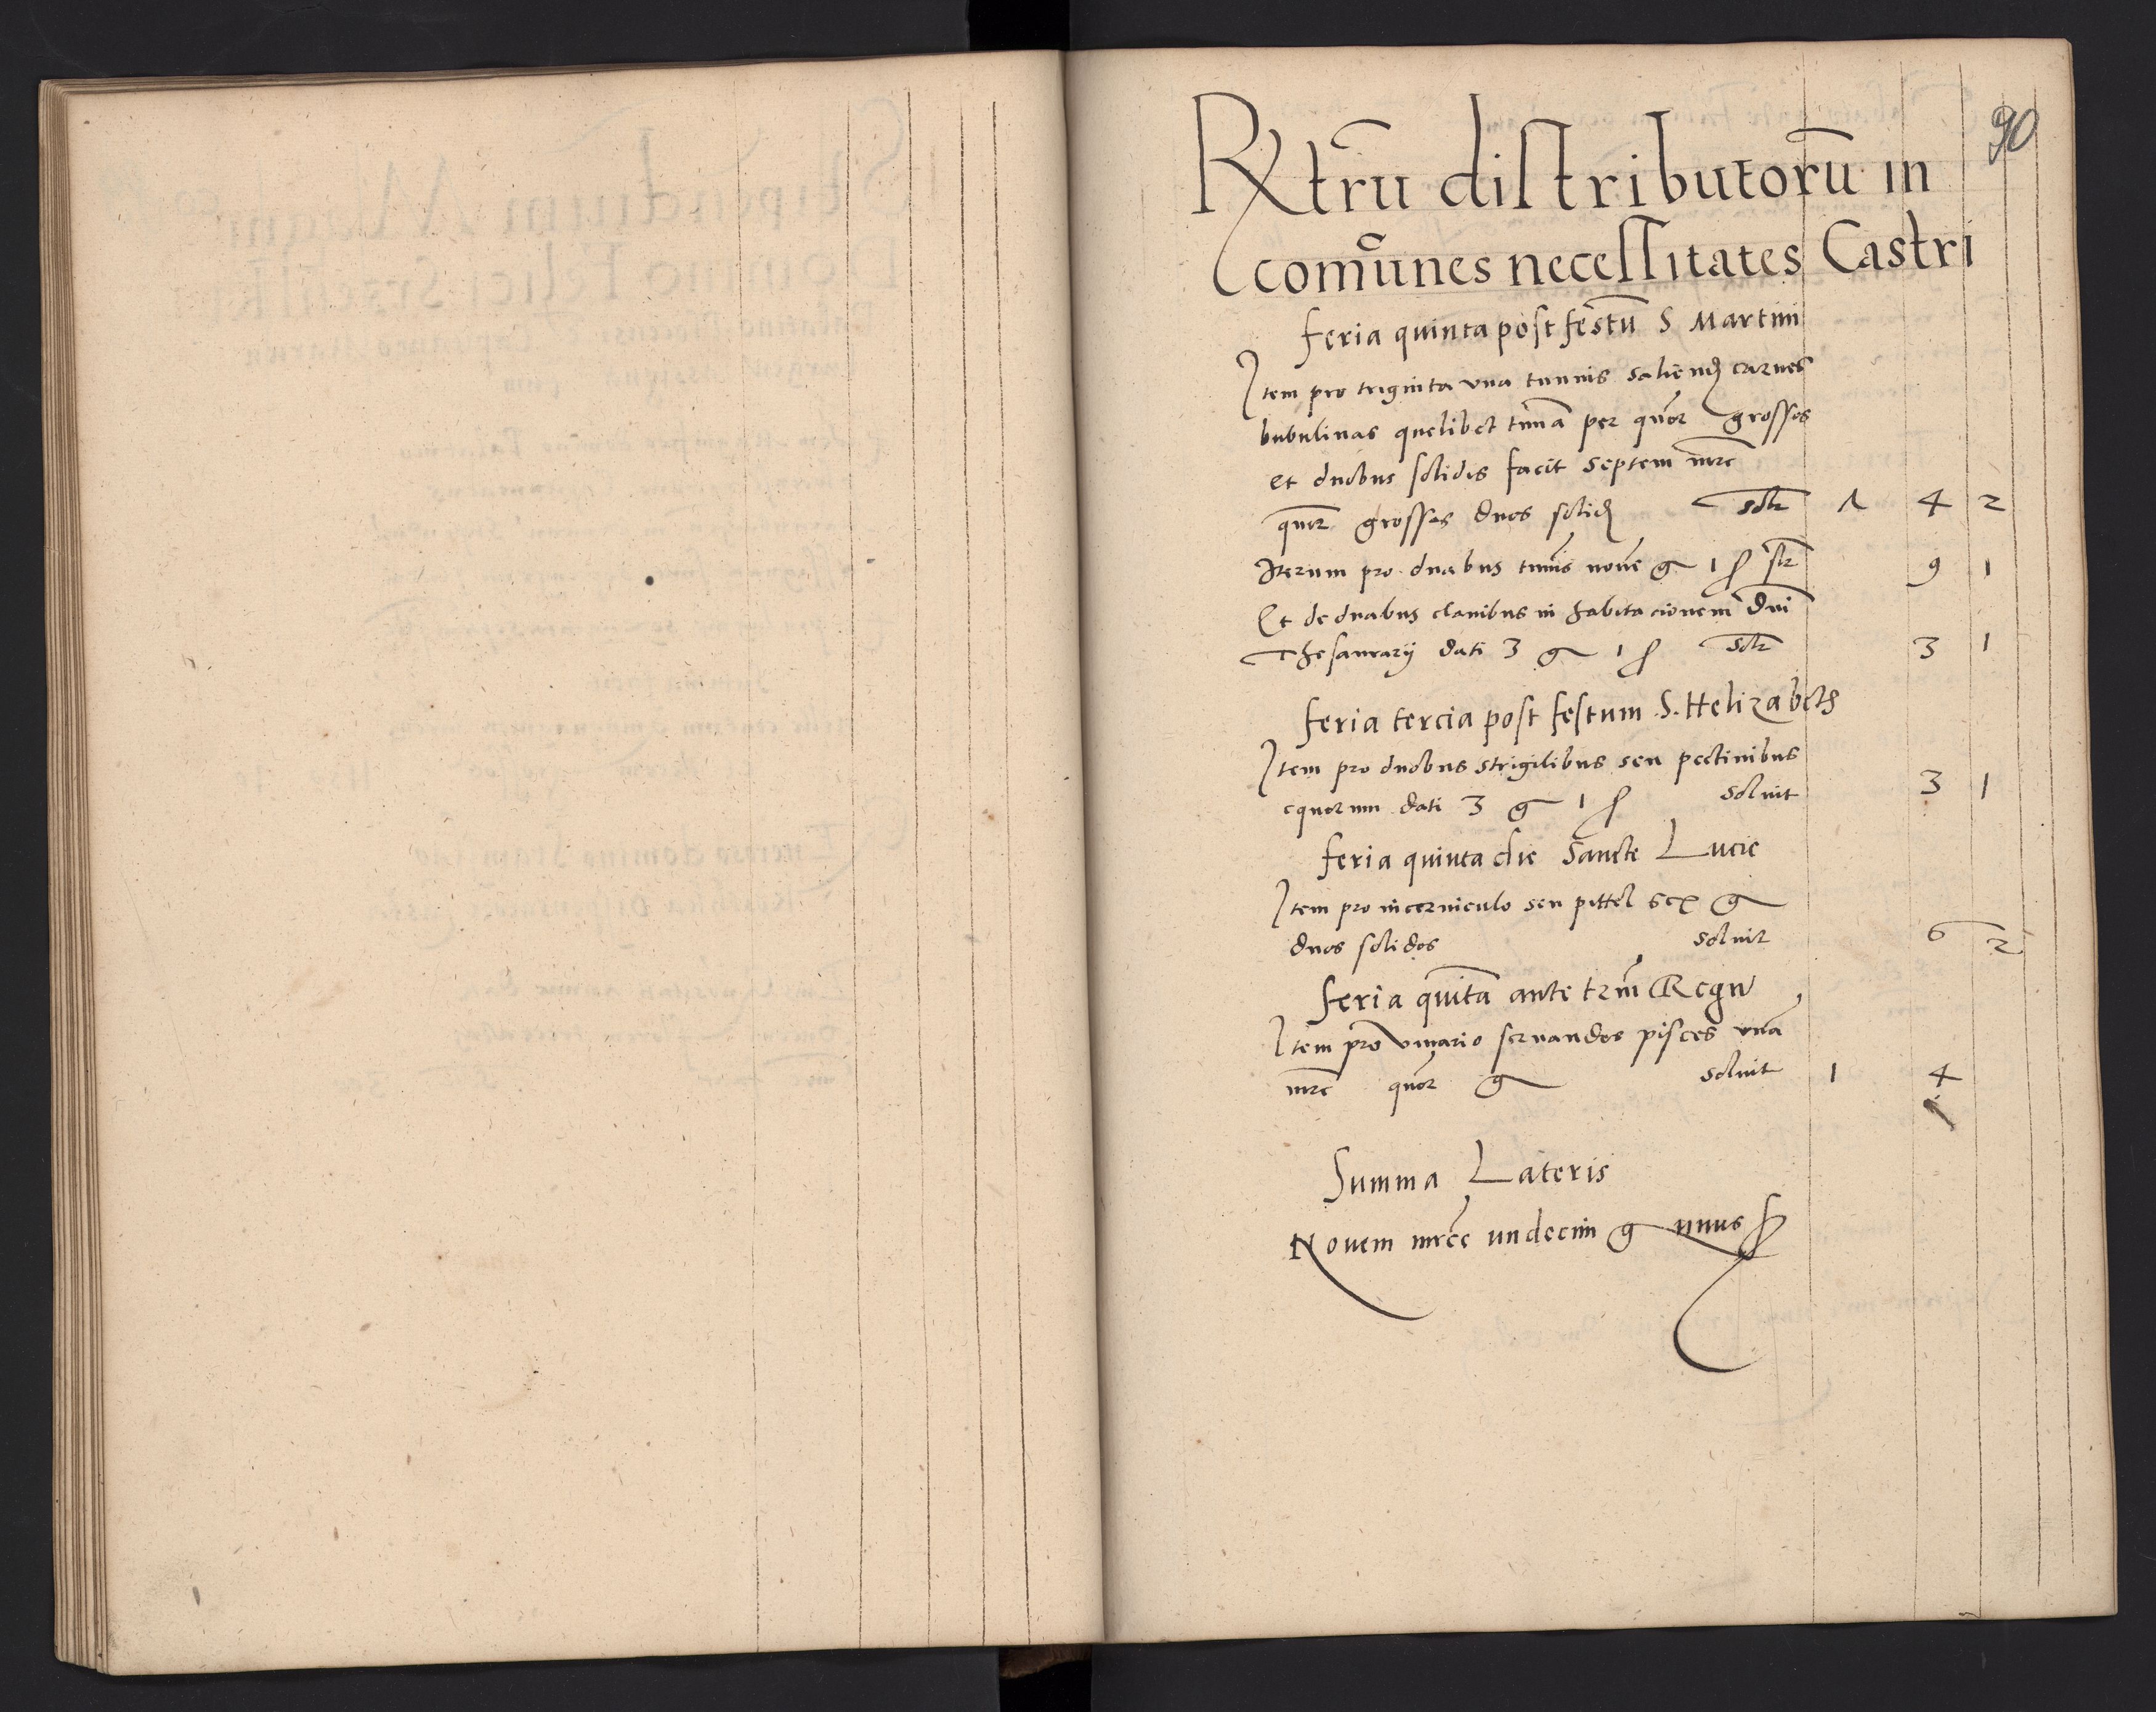 90
Rxtrū distributorū in
comūnes necessitates Castri
feria quinta post festū S Martini
Item pro triginta vna tunnis saliend carnes
bubulinas quelibet tūna per quōr grossos
et duobus solidis facit septem mrc
quōr grossos duos solid solt Λ 4 2
Iterum pro duabus tunnis nouē g 1 ſ slt 9 1
Et de duabus clauibus in habitacionem Dni
Thesaurarij dati 3 g 1 ſ solt 3 1
feria tercia post festum S. Helizabeth
Item pro duobus strigilibus seu pectinibus
equorum dati 3 g 1 ſ soluit 3 1
feria quinta die Sancte Lucie
Item pro incerniculo seu pittel sex g
duos solidos soluit 6 2
feria quīta ante trm Regū
Item pro viuario seruandos pisces vnā
mrc quōr g soluit 1 4
Summa Lateris
Nouem mrce undecim g unus ſ